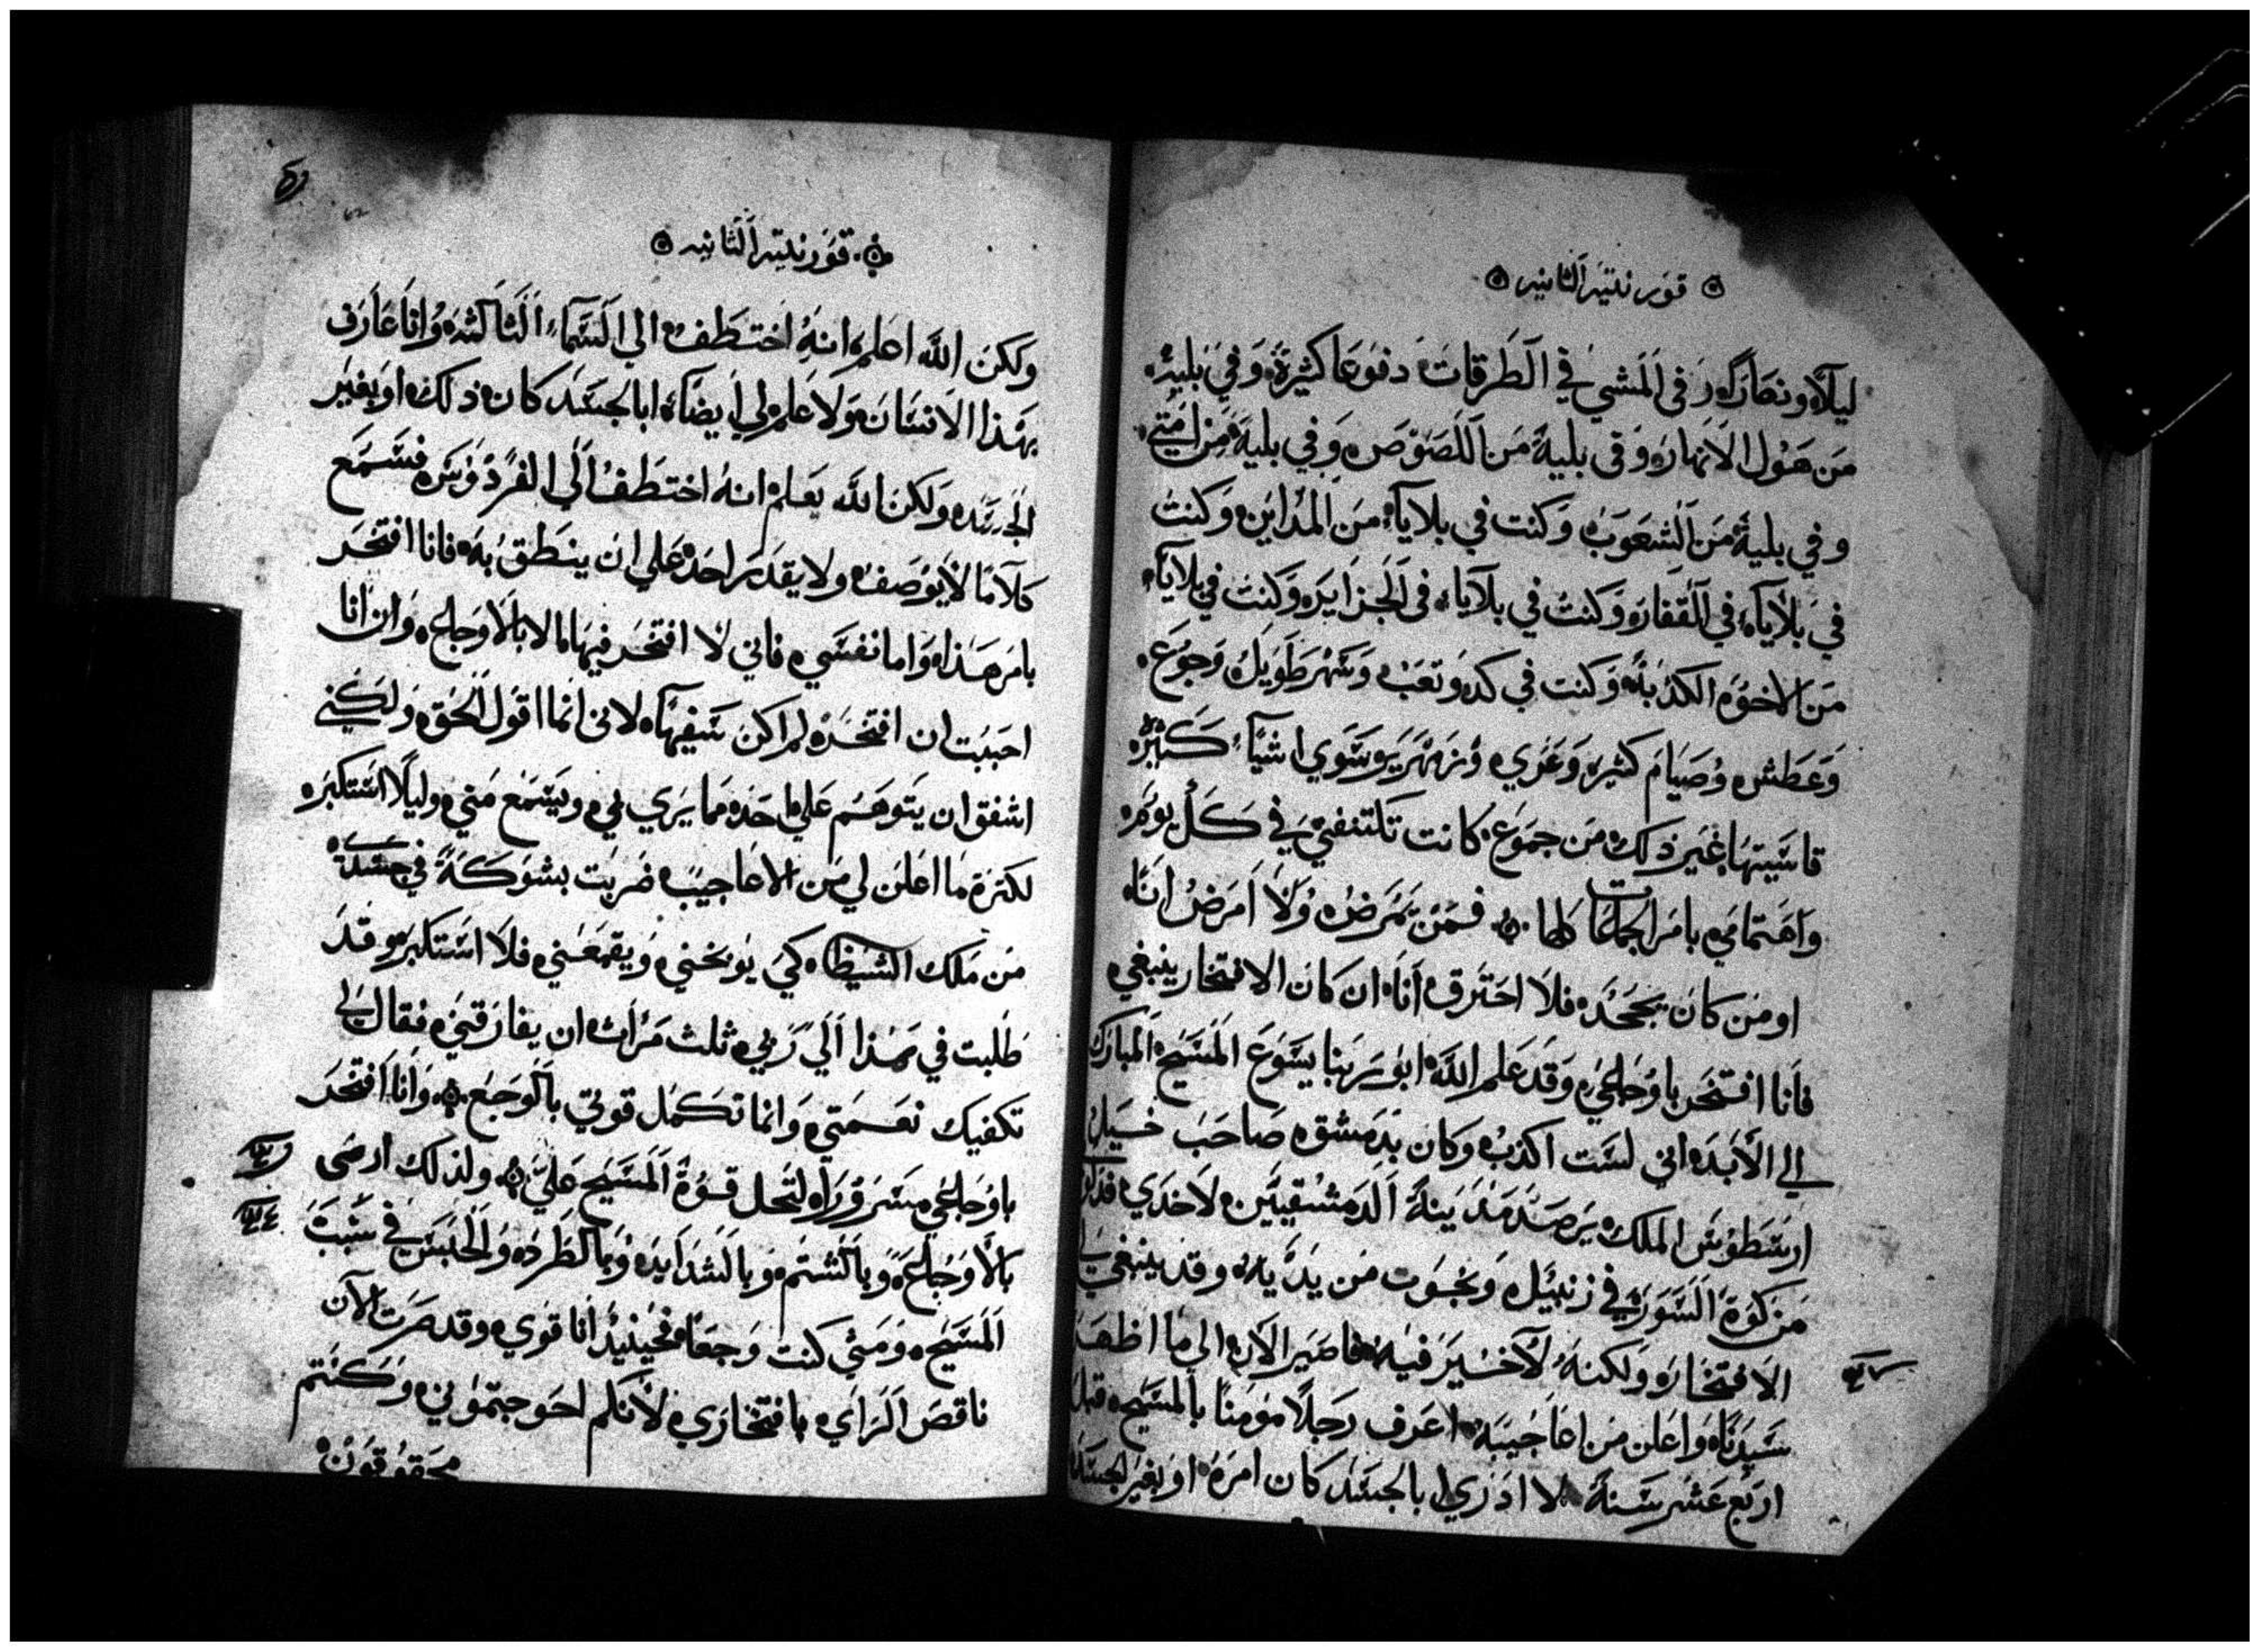 قورنتيه الثانيه
ليلاً ونهاراً وفى المشي في الطرقات دفوعا كثيرة وفي بليه
من هول الانهار وفى بلية من اللصوص وفي بلية من امتي
وفي بلية من الشعوب وكنت في بلايا من المداين وكنت
في بلايا في القفار وكنت في بلايا فى الجزاير وكنت في بلايا
من الاخوه الكدبه وكنت في كد وتعب وسهر طويل وجوع
وعطش وصيام كثير وعري وزمهرير وسوي اشيآ كثيره
قاسيتها غير ذلك من جموع كانت تكتنفني في كل يوم
واهتمامي بامر الجماعات كلها فمن يمرض ولا امرض انا
او من كان يجحد فلا احترق انا ان كان الافتخار ينبغي
فانا افتخر باوجاعي وقد علم الله ابو ربنا يسوع المسيح المبارك
الي الابد اني لست اكذب وكان بدمشق صاحب خيل
ارسطوس الملك يرصد مدينة الدمشقيين لاخدي فدلو
من كوة السور في زنبيل ونجوت من يديه وقد ينبغي
الافتخار ولكنه لا خير فيه فاصير الان الي ما اظهر
سيدنا واعلن من اعاجيبه اعرف رجلاً مومنا بالمسيح قبل
اربع عشر سنة لا ادري ابالجسد كان امره او بغير الجسد
قورنتيه الثانيه
ولكن الله اعلم انه اختطف الي السماء الثالثه وانا عارف
بهذا الانسان ولا علم لي ايضاً ابالجسد كان ذلك او بغير
الجسد ولكن الله يعلم انه اختطف الي الفردوس فسمع
كلاما لا يوصف ولا يقدر احد علي ان ينطق به فانا افتخر
بامر هذا واما نفسي فاني لا افتخر فيها الا بالاوجاع وان انا
احببت ان افتخر لم اكن سفيها لاني انما اقول الحق ولكني
اشفق ان يتوهم علي احد مما يري بي ويسمع مني وليلا استكبر
لكثرة ما اعلن لي من الاعاجيب ضربت بشوكة في جسدي
من ملك الشيطان كي يوبخني ويقمعني فلا استكبر وقد
طلبت في هذا الي ربي ثلث مرات ان يفارقني فقال لي
تكفيك نعمتي وانما تكمل قوتي بالوجع وانا افتخر
باوجاعي مسروراً لتحل قوة المسيح علي ولذلك ارضى
بالاوجاع وبالشتم وبالشدايد وبالطرد والحبس في سبب
المسيح ومتي كنت وجعا فحينيذ انا قوي وقد صرت الان
ناقص الراي بافتخاري لانكم احوجتموني وكنتم
محقوقون